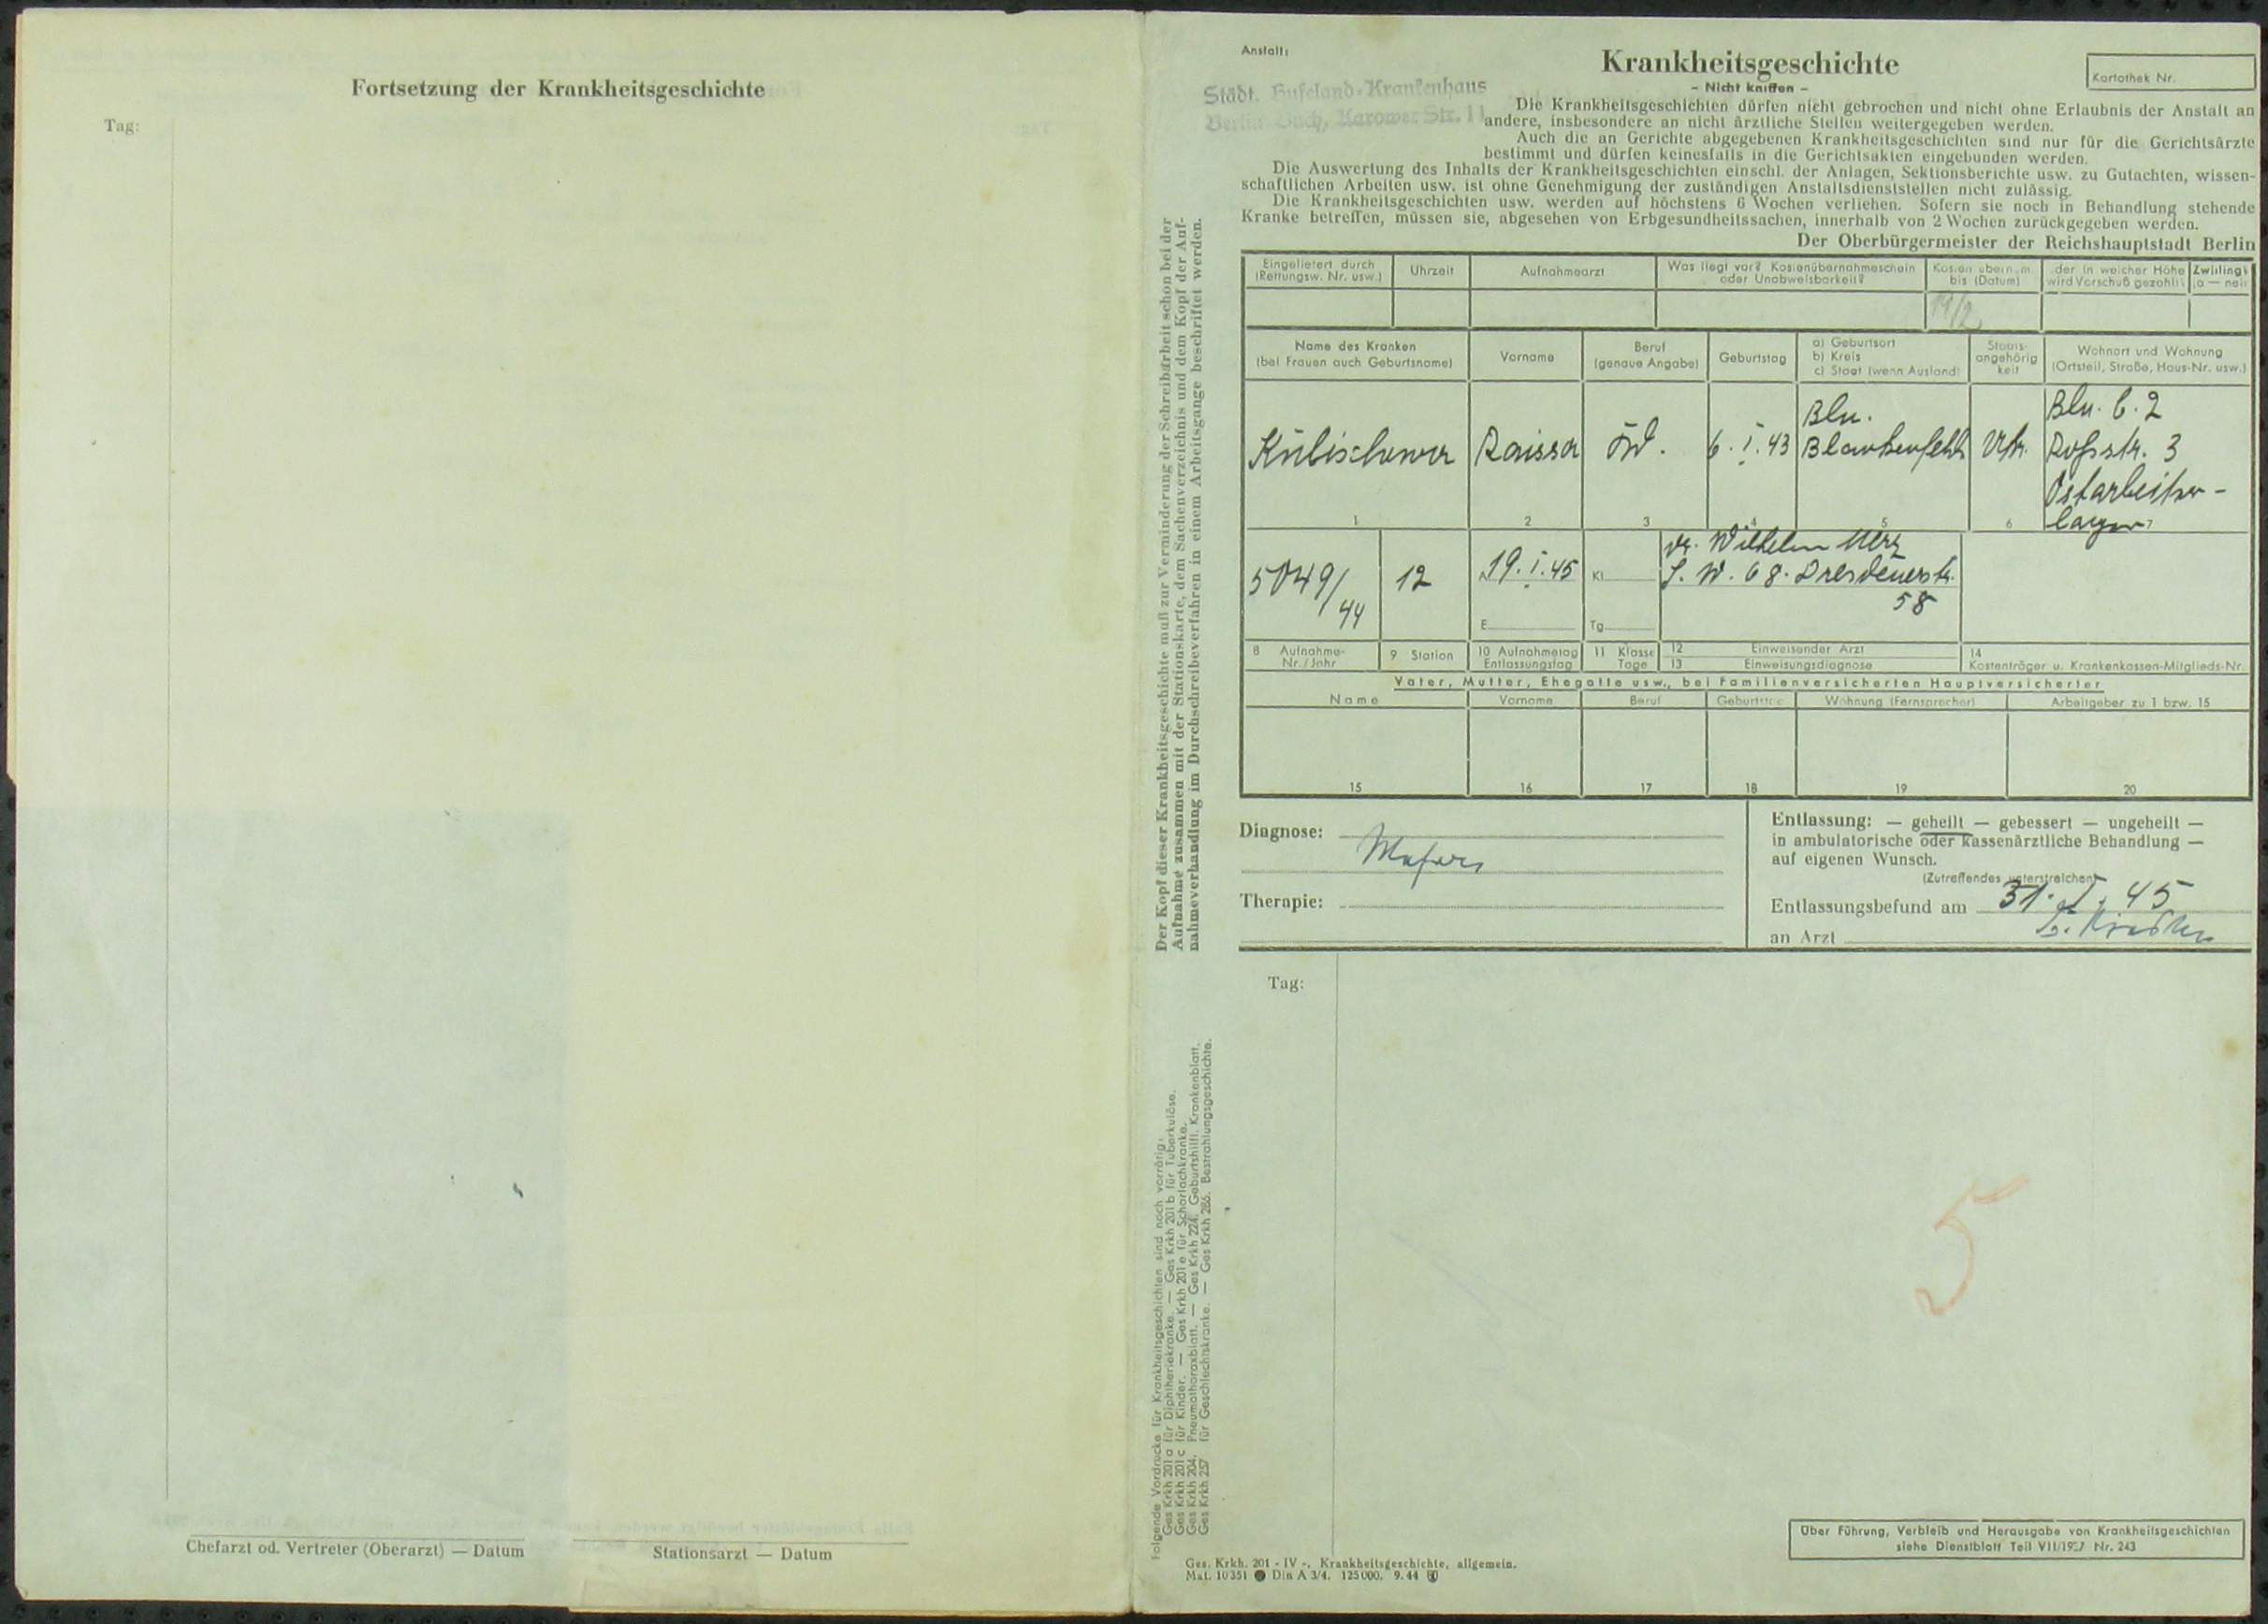 Fortsetzung der Krankheitsgeschichte
Tag:
Chefarzt od. Vertreter (Oberarzt) — Datum
Stationsarzt — Datum
Der Kopf dieser Krankheitsgeschichte muß zur Verminderung der Schreibarbeit schon bei der
Aufnahme zusammen mit der Stationskarte, dem Sachenverzeichnis und dem Kopf der Auf-
nahmeverhandlung im Durchschreibeverfahren in einem Arbeitsgange beschriftet werden.
Folgende Vordrucke für Krankheitsgeschichten sind noch vorrätig:
Ges Krkh 201 a für Diphtheriekranke. — Ges Krkh 201 b für Tuberkulöse.
Ges Krkh 201 c für Kinder. — Ges Krkh 201 e für Scharlachkranke.
Ges Krkh 204. Pneumothoraxblatt. — Ges Krkh 224. Geburtshilfl. Krankenblatt.
Ges Krkh 257 für Geschlechtskranke. — Ges Krkh 286. Bestrahlungsgeschichte.
Anstalt:
Krankheitsgeschichte
Kartothek Nr.
- Nicht kniffen -
Städt. Hufeland-Krankenhaus
Berlin-Buch, Karower Str. 11
Die Krankheitsgeschichten dürfen nicht gebrochen und nicht ohne Erlaubnis der Anstalt an
andere, insbesondere an nicht ärztliche Stellen weitergegeben werden.
Auch die an Gerichte abgegebenen Krankheitsgeschichten sind nur für die Gerichtsärzte
bestimmt und dürfen keinesfalls in die Gerichtsakten eingebunden werden.
Die Auswertung des Inhalts der Krankheitsgeschichten einschl. der Anlagen, Sektionsberichte usw. zu Gutachten, wissen-
schaftlichen Arbeiten usw. ist ohne Genehmigung der zuständigen Anstaltsdienststellen nicht zulässig.
Die Krankheitsgeschichten usw. werden auf höchstens 6 Wochen verliehen. Sofern sie noch in Behandlung stehende
Kranke betreffen, müssen sie, abgesehen von Erbgesundheitssachen, innerhalb von 2 Wochen zurückgegeben werden.
Der Oberbürgermeister der Reichshauptstadt Berlin
Eingeliefert durch
(Rettungsw. Nr. usw.)
Uhrzeit
Aufnahmearzt
Was liegt vor? Kostenübernahmeschein
oder Unabweisbarkeit?
Kosten übern.m.
bis (Datum)
oder in welcher Höhe
wird Vorschuß gezahlt?
Zwilling?
ja — nein
19/2
Name des Kranken
(bei Frauen auch Geburtsname)
Vorname
Beruf
(genaue Angabe)
Geburtstag
a) Geburtsort
b) Kreis
c) Staat (wenn Ausland)
Staats-
angehörig
keit
Wohnort und Wohnung
(Ortsteil, Straße, Haus-Nr. usw.)
Raissa
6. I. 43
Bln.
Blankenfelde
Bln. C. 2
Roßstr. 3
Ostarbeiter-
lager
1 2 3 4 5 6 7
5049/44
12
A 19. I. 45
E
Kl
Tg
Dr. Wilhelm Merz
S. W. 68. Dresdenerstr.
58
8 Aufnahme-
Nr./Jahr
9 Station
10 Aufnahmetag
Entlassungstag
11 Klasse
Tage
12 Einweisender Arzt
13 Einweisungsdiagnose
14
Kostenträger u. Krankenkassen-Mitglieds-Nr.
Vater, Mutter, Ehegatte usw., bei Familienversicherten Hauptversicherter
Name
Vorname
Beruf
Geburtstag
Wohnung (Fernsprecher)
Arbeitgeber zu 1 bzw. 15
15 16 17 18 19 20
Diagnose:
Therapie:
Entlassung: — geheilt — gebessert — ungeheilt —
in ambulatorische oder kassenärztliche Behandlung —
auf eigenen Wunsch.
(Zutreffendes unterstreichen)
Entlassungsbefund am 31. I. 45
an Arzt
Tag:
5
Über Führung, Verbleib und Herausgabe von Krankheitsgeschichten
siehe Dienstblatt Teil VII/1937 Nr. 243
Ges. Krkh. 201 - IV -. Krankheitsgeschichte, allgemein.
Mat. 10351 Din A 3/4. 125000. 9. 44